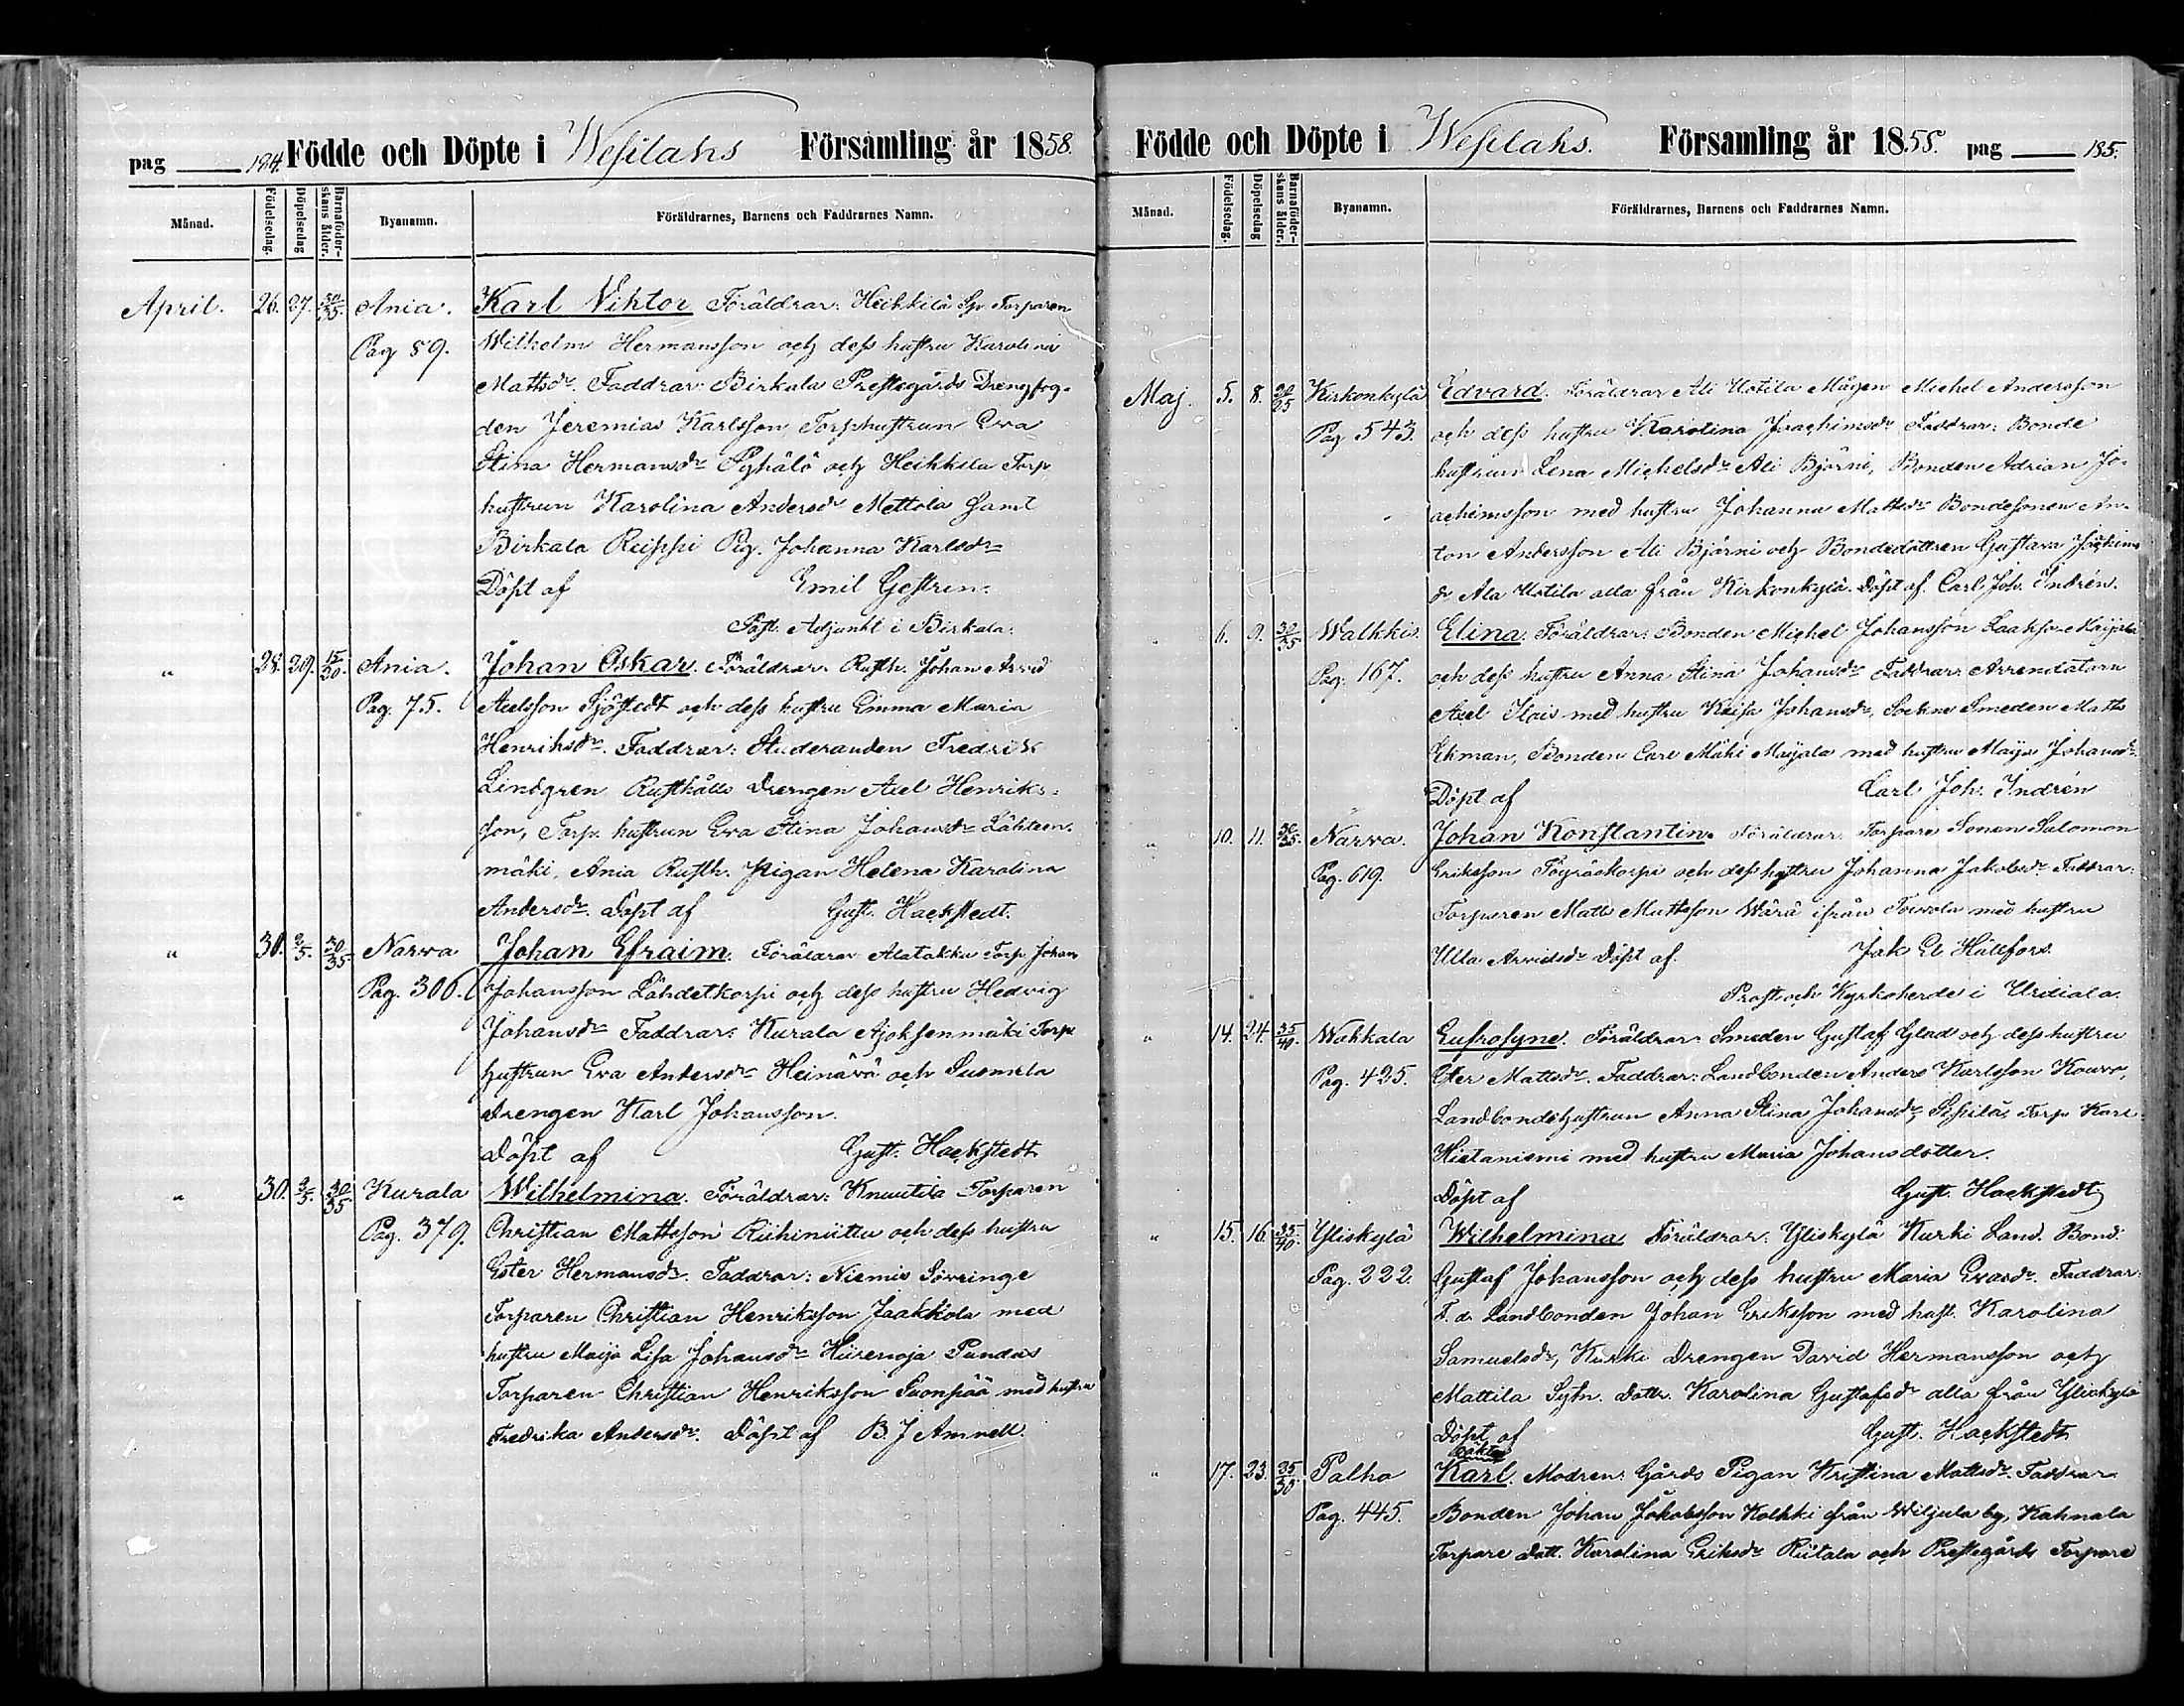 pag 184. Födde och Döpte i Wesilahs Församling år 1858.
Månad. Födelsedag. Döpelsedag Barnaföderskans ålder. Byanamn. Föräldrarnes, Barnens och Faddrarnes Namn.
April. 26. 27. 30/35. Ania. Karl Viktor Föräldrar: Heikkilä Torparen
Pag 59. Wilhelm Hermansson och dess hustru Karolina
Mattsdr. Faddrar: Birkala Prestegårds Drengfog-
den Jeremias Karlsson, Torphustrun Eva
Stina Hermansdr Pyhälö och Heikkilä Torp
hustrun Karolina Andersdr Mettola samt
Birkala Reippi Pig. Johanna Karlsdr
Döpt af Emil Gestren.
Past. Adjunkt i Birkala.
" 28. 29. 15/20. Ania. Johan Oskar. Föräldrar: Rusth. Johan Arvid
Pag. 75. Axelsson Sjöstedt och dess hustru Emma Maria
Henriksdr. Faddrar: Studeranden Fredrik
Lindgren Rusthålls Drengen Axel Henriks-
son, Torp. hustrun Eva Stina Johansdr Lähteen-
mäki, Ania Rusth. Pigan Helena Karolina
Andersdr. Döpt af Gust. Hackstedt.
" 30. 2/5. 30/35 Narva Johan Efraim. Föräldrar Alatakku Torp Johan
Pag. 306. Johansson Lähdetkorpi och dess hustru Hedvig
Johansdr Faddrar: Kurala Ajoksenmäki Torp
hustrun Eva Andersdr Heinävä och Suomela
drengen Karl Johansson.
Döpt af Gust. Hackstedt
" 30. 2/5. 30/35 Kurala Wilhelmina. Föräldrar: Knuutila Torparen
Pag. 379. Christian Mattsson Riihiniittu och dess hustru
Ester Hermansdr. Faddrar: Niemis Söreinge
Torparen Christian Henriksson Jaakkola med
hustru Maija Lisa Johansdr Hiirenoja Pundas
Torparen Christian Henriksson Suonpää med hustru
Fredrika Andersdr. Döpt af B. J Amnell.
Födde och Döpte i Wesilahs. Församling år 1858. pag 185.
Månad. Födelsedag. Döpelsedag Barnaföderskans ålder. Byanamn. Föräldrarnes, Barnens och Faddrarnes Namn.
Maj. 5. 8. 20/25 Kirkonkylä Edvard. Föräldrar Ali Uotila Mågen Michel Andersson
Pag 543. och dess hustru Karolina Joachimsdr Faddrar: Bonde
hustrun Lena Michelsdr Ali Bjärni, Bonden Adrian Jo-
achimsson med hustru Johanna Mattsdr Bondesonen An-
ton Andersson Ali Bjärni och Bondedottren Gustava Joachims
dr Ala Uotila alla från Kirkonkylä. Döpt af Carl Joh. Indrén.
" 6. 9. 30/35 Walkkis. Elina. Föräldrar: Bonden Michel Johansson Laakso-Maijala
Pag. 167. och dess hustru Anna Stina Johansdr Faddrar: Arrendatorn
Axel Flais med hustru Kaisa Johansdr, Sockne Smeden Matts
Ekman, Bonden Carl Mäki Maijala med hustru Maija Johansdr.
Döpt af Carl Joh. Indrén
" 10. 11. 30/35. Narva. Johan Konstantin. Föräldrar: Torpare Sonen Salomon
Pag. 619. Eriksson Töyräskorpi och dess hustru Johanna Jakobsdr Faddrar:
Torparen Matts Mattsson Wärä ifrån Toivola med hustru
Ulla Arvidsdr Döpt af. Jak. El Hällfors.
Prost och Kyrkoherde i Urdiala.
" 14. 24. 35/40. Wakkala Eufrosyne. Föräldrar: Smeden Gustaf Glad och dess hustru
Pag. 425. Ester Mattsdr. Faddrar: Landbonden Anders Karlsson Kouvo,
Landbondehustrun Anna Stina Johansdr Sipilä, Torp. Karl
Hietaniemi med hustru Maria Johansdotter.
Döpt af Gust. Hackstedt
" 15. 16. 35/40. Yliskylä Wilhelmina Föräldrar: Yliskylä Kurki Land. Bond.
Pag. 222. Gustaf Johansson och dess hustru Maria Evasdr. Faddrar:
F. d. Landbonden Johan Eriksson med hust. Karolina
Samuelsdr, Kurki Drengen David Hermansson och
Mattila Sytn. Dottr. Karolina Gustafsdr alla från Yliskylä
Döpt af Gust. Hackstedt
oäkta
" 17. 23. 35/30. Palho Karl. Modren: Gårds Pigan Kristina Mattsdr. Faddrar
Pag. 445. Bonden Johan Jakobsson Kolkki från Wiljula by, Kahnala
Torpare dott. Karolina Eriksdr Riitala och Prestegårds Torpare